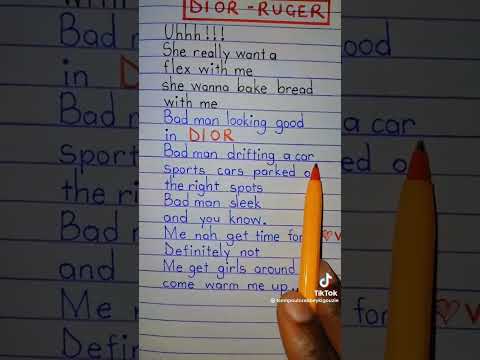 DIOR - RUGER
Uhhh!!!
She really want a
flex with me
she wanna bake bread
with me
Bad man looking good
in DIOR
Bad man drifting a car
sports cars parked
the right spots
Bad man sleek
and you know.
Me nah get time for
Definitely not
Me get girls around
come warm me up
TikTok